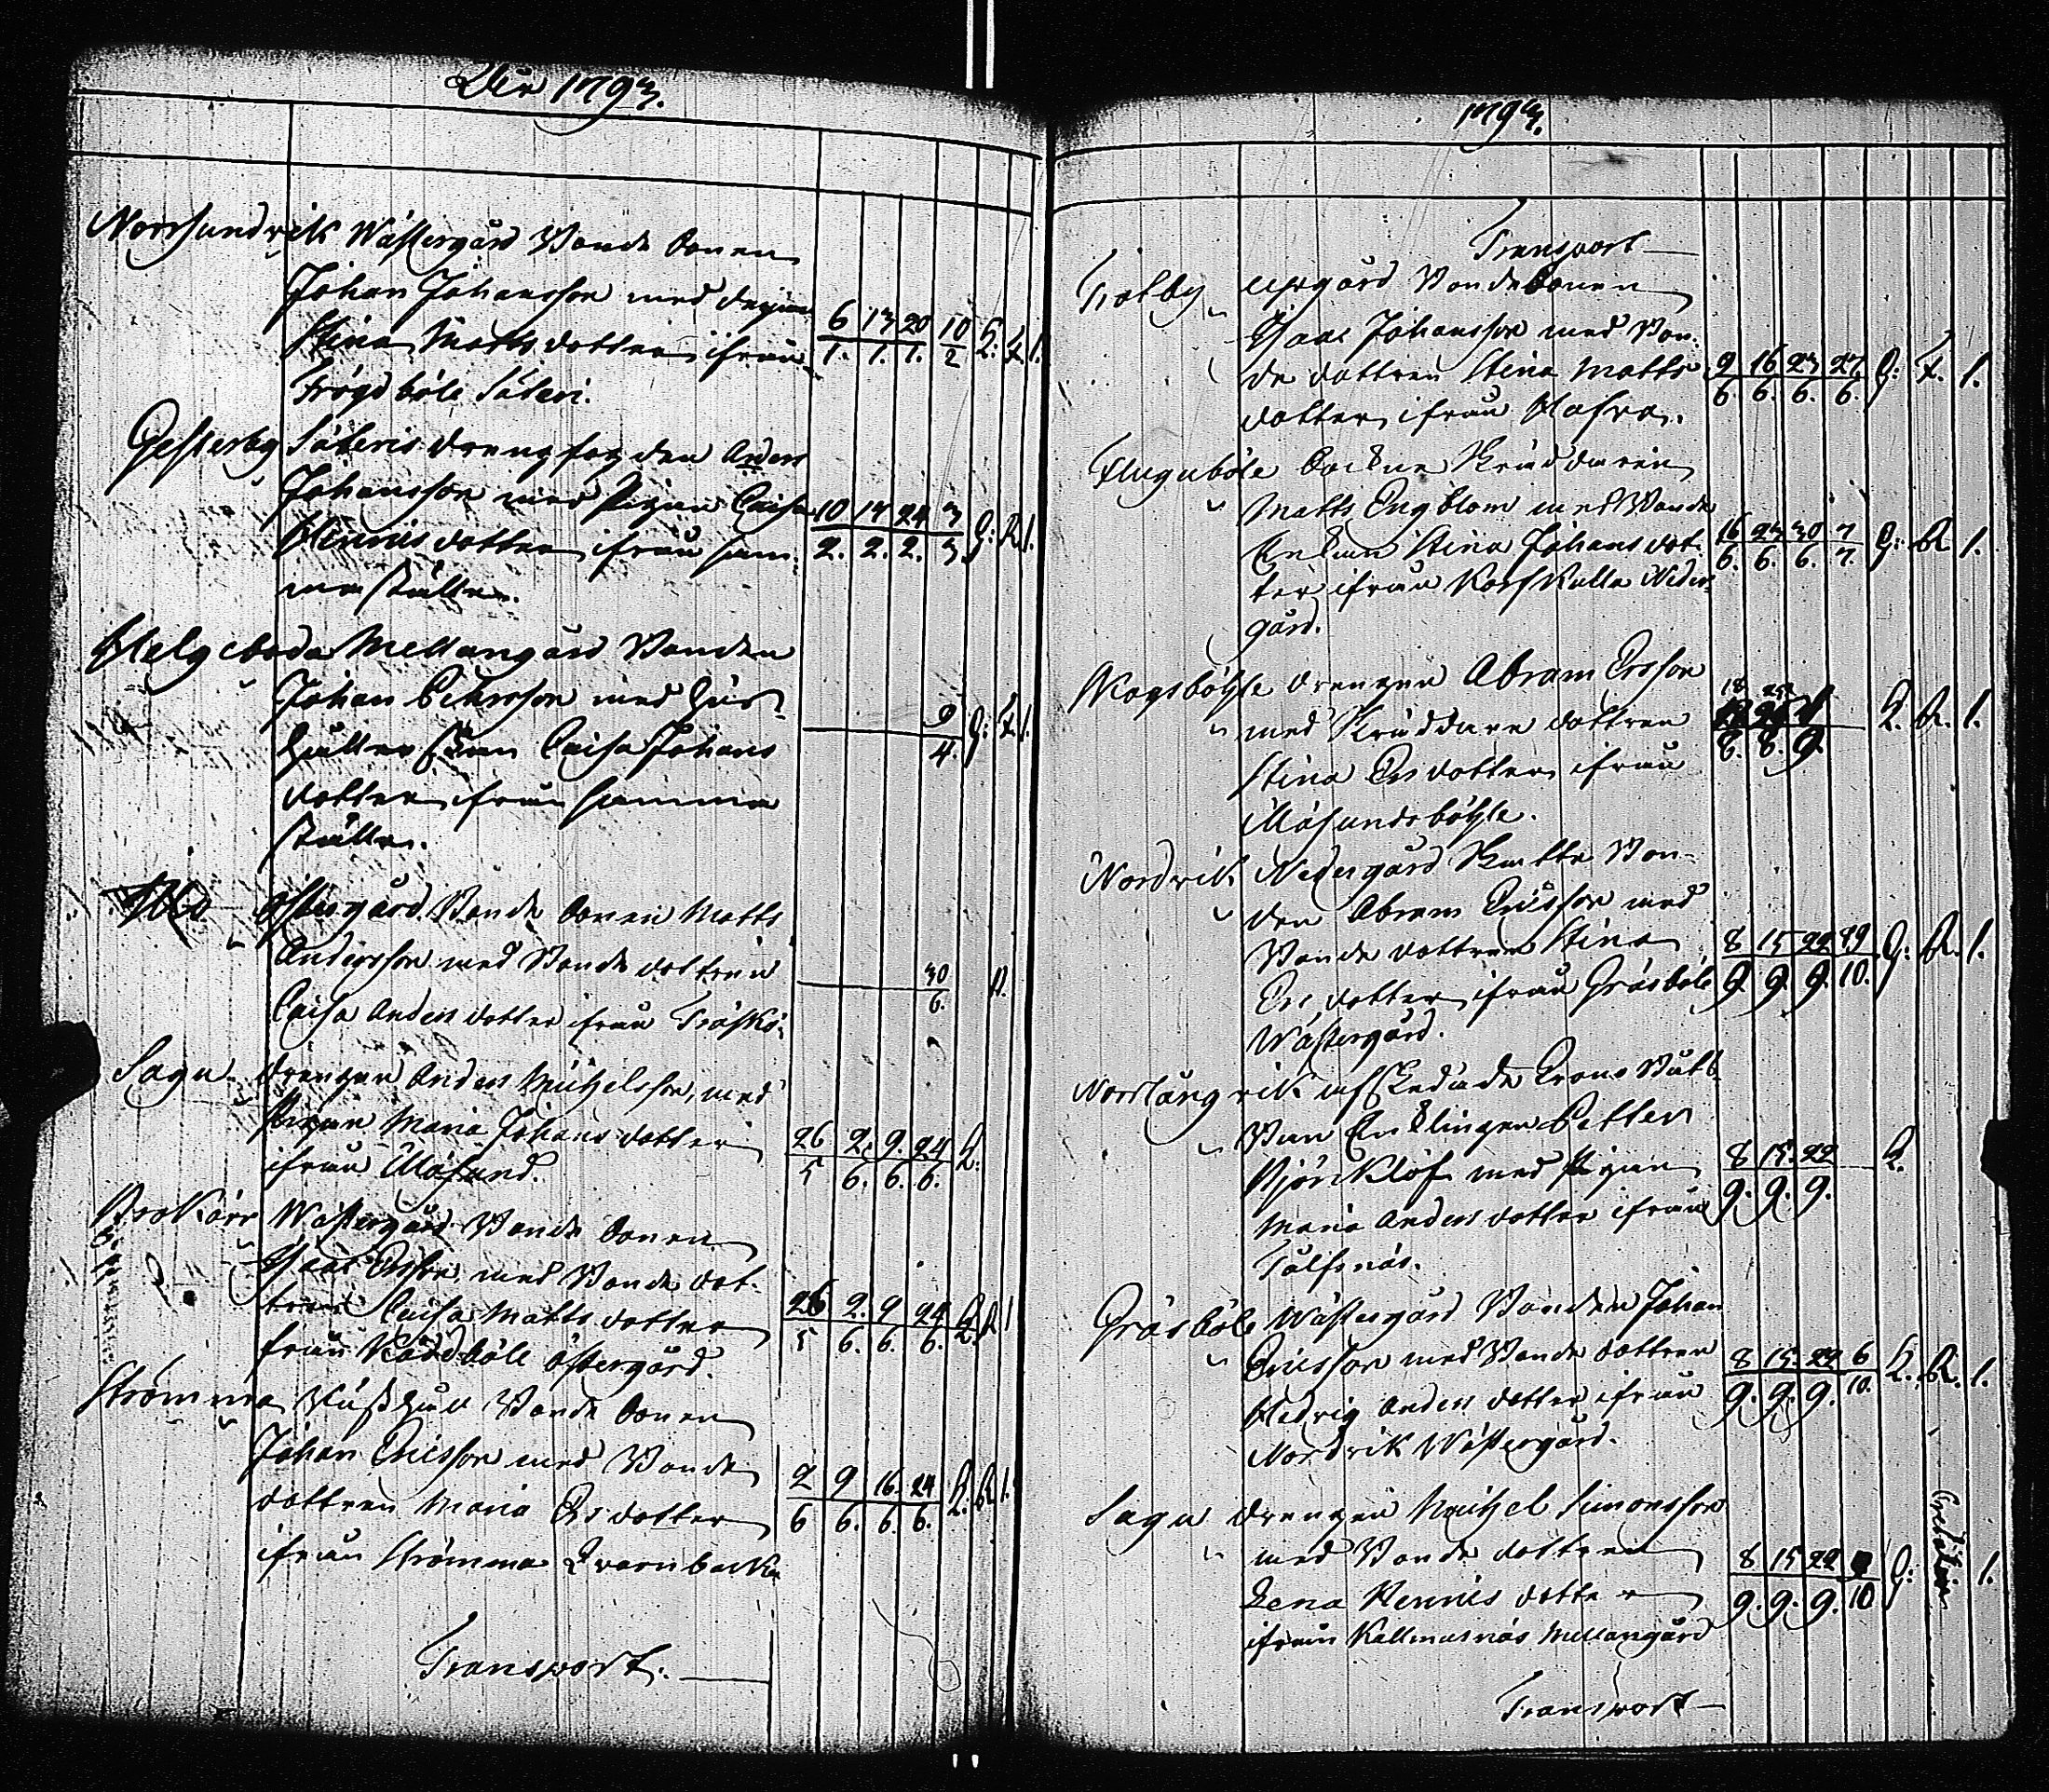 1793.
Norrsundvik Wästergård Bonde Sonen
Johan Johansson med Pigan
Stina Matts dotter ifrån
Frögdböle Säteri.
6 13 20 10 L. F. 1.
1. 1. 1. 2
Gesterby Säteris Dreng fogden Anders
Johansson med Pigan Caisa
Hinrics dotter ifrån sam-
ma ställe.
10 17 24 3 G: R 1.
2. 2. 2. 3
Helgeboda Mellangård Bonden
Johan Pehrsson med Hus-
hållerskan Caisa Johans
dotter ifrån samma
ställe.
9 G: F. 1.
4.
Östergård Bonde Sonen Matts
Andersson med Bonde dottren
Caisa Anders dotter ifrån Träskö.
30 R.
6.
Sagu Drengen Anders Michelsson, med
Pigan Maria Johans dotter
ifrån Måsund.
26 2. 9. 24 L.
5 6. 6. 6.
Brokärr Wästergård Bonde Sonen
Isaac Ersson med Bonde dot-
tren Caisa Matts dotter
från Kåddböle Östergård.
26 2. 9 24 L. R 1
5 6. 6. 6.
Strömma Bonde Sonen
Johan Ericsson med Bonde
dottren Maria Ers dotter
ifrån Strömma Qvarnbacka
2 9 16. 24 L. R 1.
6 6. 6. 6.
Transport.
1793.
Transport
Trotby uppgård Bonde Sonen
Isaac Johansson med Bon-
de dottren Stina Matts
dotter ifrån
9 16 23 27. G: F. 1.
6. 6. 6. 6.
Fluguböle Sockne Skräddaren
Matts Engblom med Bonde
Enkan Stina Johans dot-
ter ifrån Korskulla Neder-
gård.
16 23 30 7 G: R 1.
6. 6. 6. 7.
Skogsböhle Drengen Abram Ersson
med Skräddare dottren
Stina Ers dotter ifrån
Måsundsböhle.
18 25 1 L. R. 1.
8. 8. 9.
Nordvik Nedergård Skatte Bon-
den Abram Ericsson med
Bonde dottren Stina
Ers dotter ifrån Gräsböle
Wästergård.
8 15 22 29 G: R. 1.
9. 9. 9. 10.
Norrlångvik afskedade Crono Båts
man Enklingen Petter
Björklöf med Pigan
Maria Anders dotter ifrån
Tålfsnäs.
8 15. 22 L.
9. 9. 9.
Gräsböle Wästergård Bonden Johan
Ericsson med Bonde dottren
Hedvig Anders dotter ifrån
Nordvik Wästergård.
8 15. 22 6 L. R. 1.
9. 9. 9. 10.
Sagu Drengen Michel Simonsson
med Bonde dottren
Lena Henrics dotter
ifrån Kallmusnäs Mellangård
8 15 22 G: 1.
9. 9. 9. 10
Transport